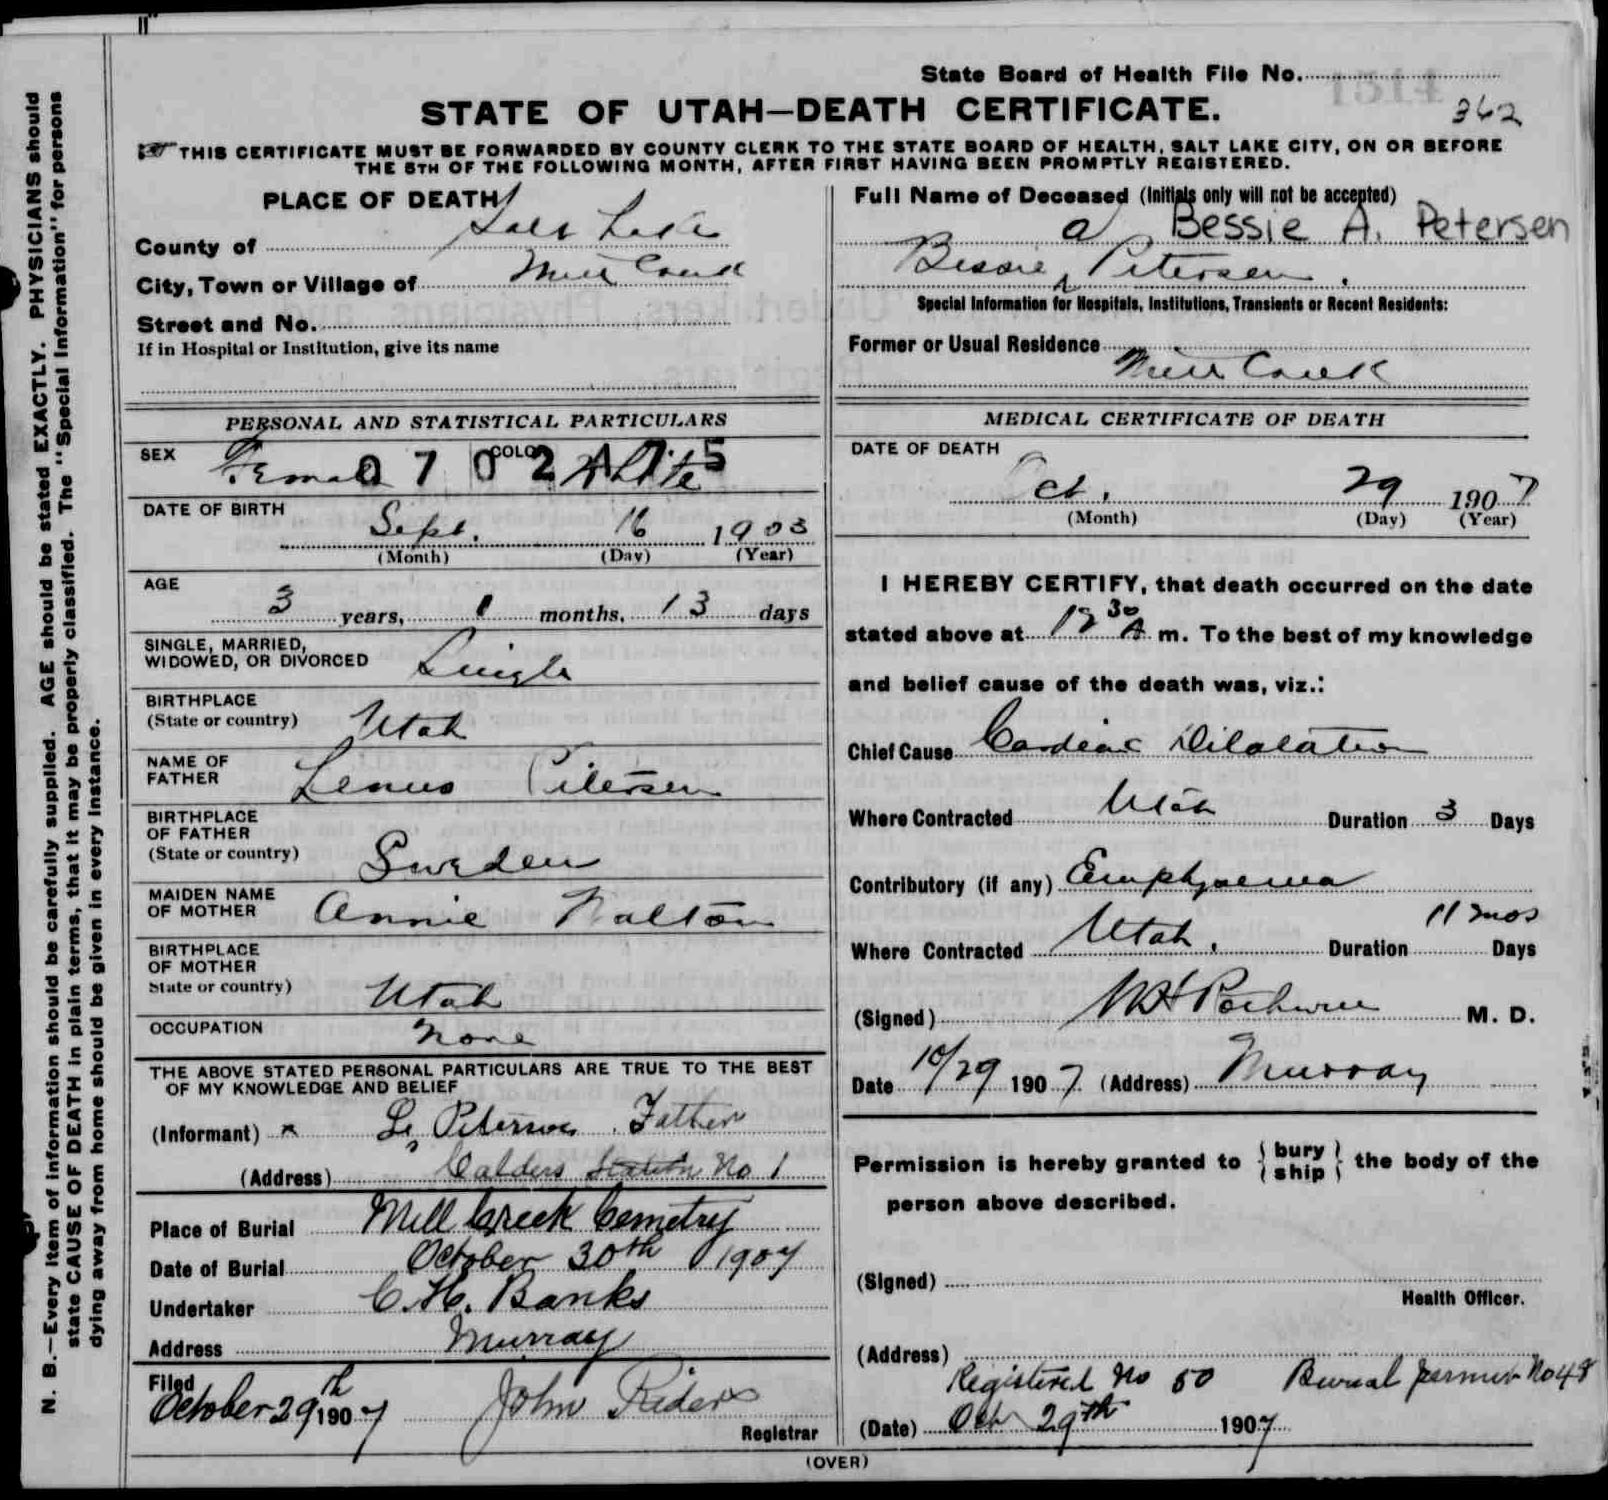 State Board of Health File No.
362
STATE OF UTAH—DEATH CERTIFICATE.
THIS CERTIFICATE MUST BE FORWARDED BY COUNTY CLERK TO THE STATE BOARD OF HEALTH, SALT LAKE CITY, ON OR BEFORE
THE 5TH OF THE FOLLOWING MONTH, AFTER FIRST HAVING BEEN PROMPTLY REGISTERED.
N. B.—Every item of information should be carefully supplied. AGE should be stated EXACTLY. PHYSICIANS should
state CAUSE OF DEATH in plain terms, that it may be properly classified. The "Special Information" for persons
dying away from home should be given in every instance.
PLACE OF DEATH
County of Salt Lake
City, Town or Village of Mill Creek
Street and No.
If in Hospital or Institution, give its name
PERSONAL AND STATISTICAL PARTICULARS
SEX Female COLOR White
0702475
DATE OF BIRTH
Sept. 16 1903
(Month) (Day) (Year)
AGE
3 years, 1 months, 13 days
SINGLE, MARRIED,
WIDOWED, OR DIVORCED Single
BIRTHPLACE
(State or country) Utah
NAME OF
FATHER Lenus Petersen
BIRTHPLACE
OF FATHER
(State or country) Sweden
MAIDEN NAME
OF MOTHER Annie Walton
BIRTHPLACE
OF MOTHER
State or country) Utah
OCCUPATION None
THE ABOVE STATED PERSONAL PARTICULARS ARE TRUE TO THE BEST
OF MY KNOWLEDGE AND BELIEF
(Informant) x L. Peterson. Father
(Address) Calders Station No 1
Place of Burial Mill Creek Cemetry
Date of Burial October 30th 1907
Undertaker C. H. Banks
Address Murray
Filed
October 29th 1907 John Rider
Registrar
Full Name of Deceased (Initials only will not be accepted)
a Bessie A. Petersen
Bessie Petersen.
Special Information for Hospitals, Institutions, Transients or Recent Residents:
Former or Usual Residence
Mill Creek
MEDICAL CERTIFICATE OF DEATH
DATE OF DEATH
Oct. 29 1907
(Month) (Day) (Year)
I HEREBY CERTIFY, that death occurred on the date
stated above at 12 30 A. m. To the best of my knowledge
and belief cause of the death was, viz.:
Chief Cause Cardiac Dilatation
Where Contracted Utah Duration 3 Days
Contributory (if any) Emphyaema
Where Contracted Utah. Duration 11 mos Days
(Signed) M. D.
Date 10/29 1907. (Address) Murray
Permission is hereby granted to { bury ship } the body of the
person above described.
(Signed)
Health Officer.
(Address)
Registered No 50 Burial permit No 48
(Date) Oct 29th 1907
(OVER)